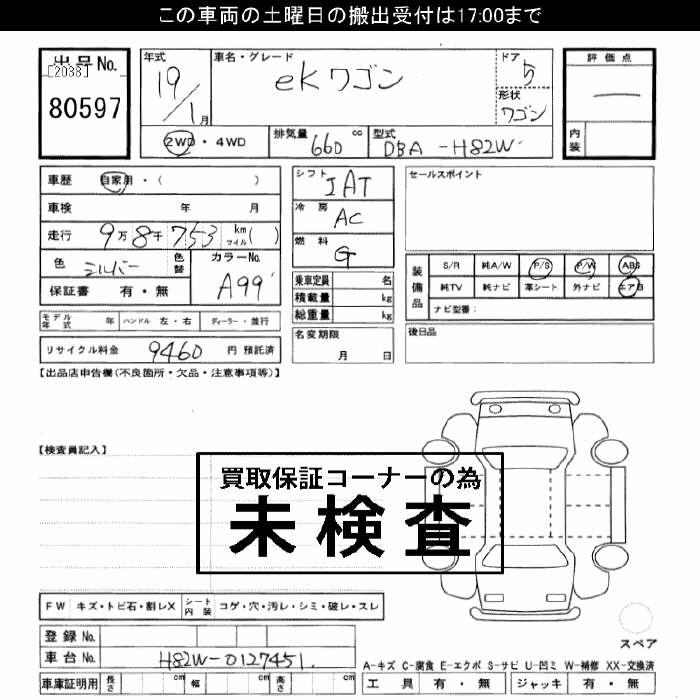 この車両の土曜日の搬出受付は17:00まで
出品No.
[2038]
80597
年式
19/1月
車名・グレード
ekワゴン
ドア
5
形状
ワゴン
評価点
内装
2WD・4WD
排気量 660 cc
型式 DBA-H82W
車歴 自家用・( )
車検 年 月
走行 9万8千753 km マイル( )
色 シルバー 色替
カラーNo. A99
保証書 有・無
シフト IAT
冷房 AC
燃料 G
乗車定員 名
積載量 kg
総重量 kg
セールスポイント
装備品
S/R 純A/W P/S P/W ABS
純TV 純ナビ 革シート 外ナビ エアB
ナビ型番:
モデル年式 年 ハンドル 左・右 ディーラー・並行
名変期限
月 日
後日品
リサイクル料金 9460 円 預託済
【出品店申告欄(不良箇所・欠品・注意事項等)】
【検査員記入】
買取保証コーナーの為
未検査
FW キズ・トビ石・割レX シート内装 コゲ・穴・汚レ・シミ・破レ・スレ
登録No.
車台No. H82W-0127451
車庫証明用 長さ cm 幅 cm 高さ cm
スペア
A-キズ C-腐食 E-エクボ S-サビ U-凹ミ W-補修 XX-交換済
工具 有・無 ジャッキ 有・無